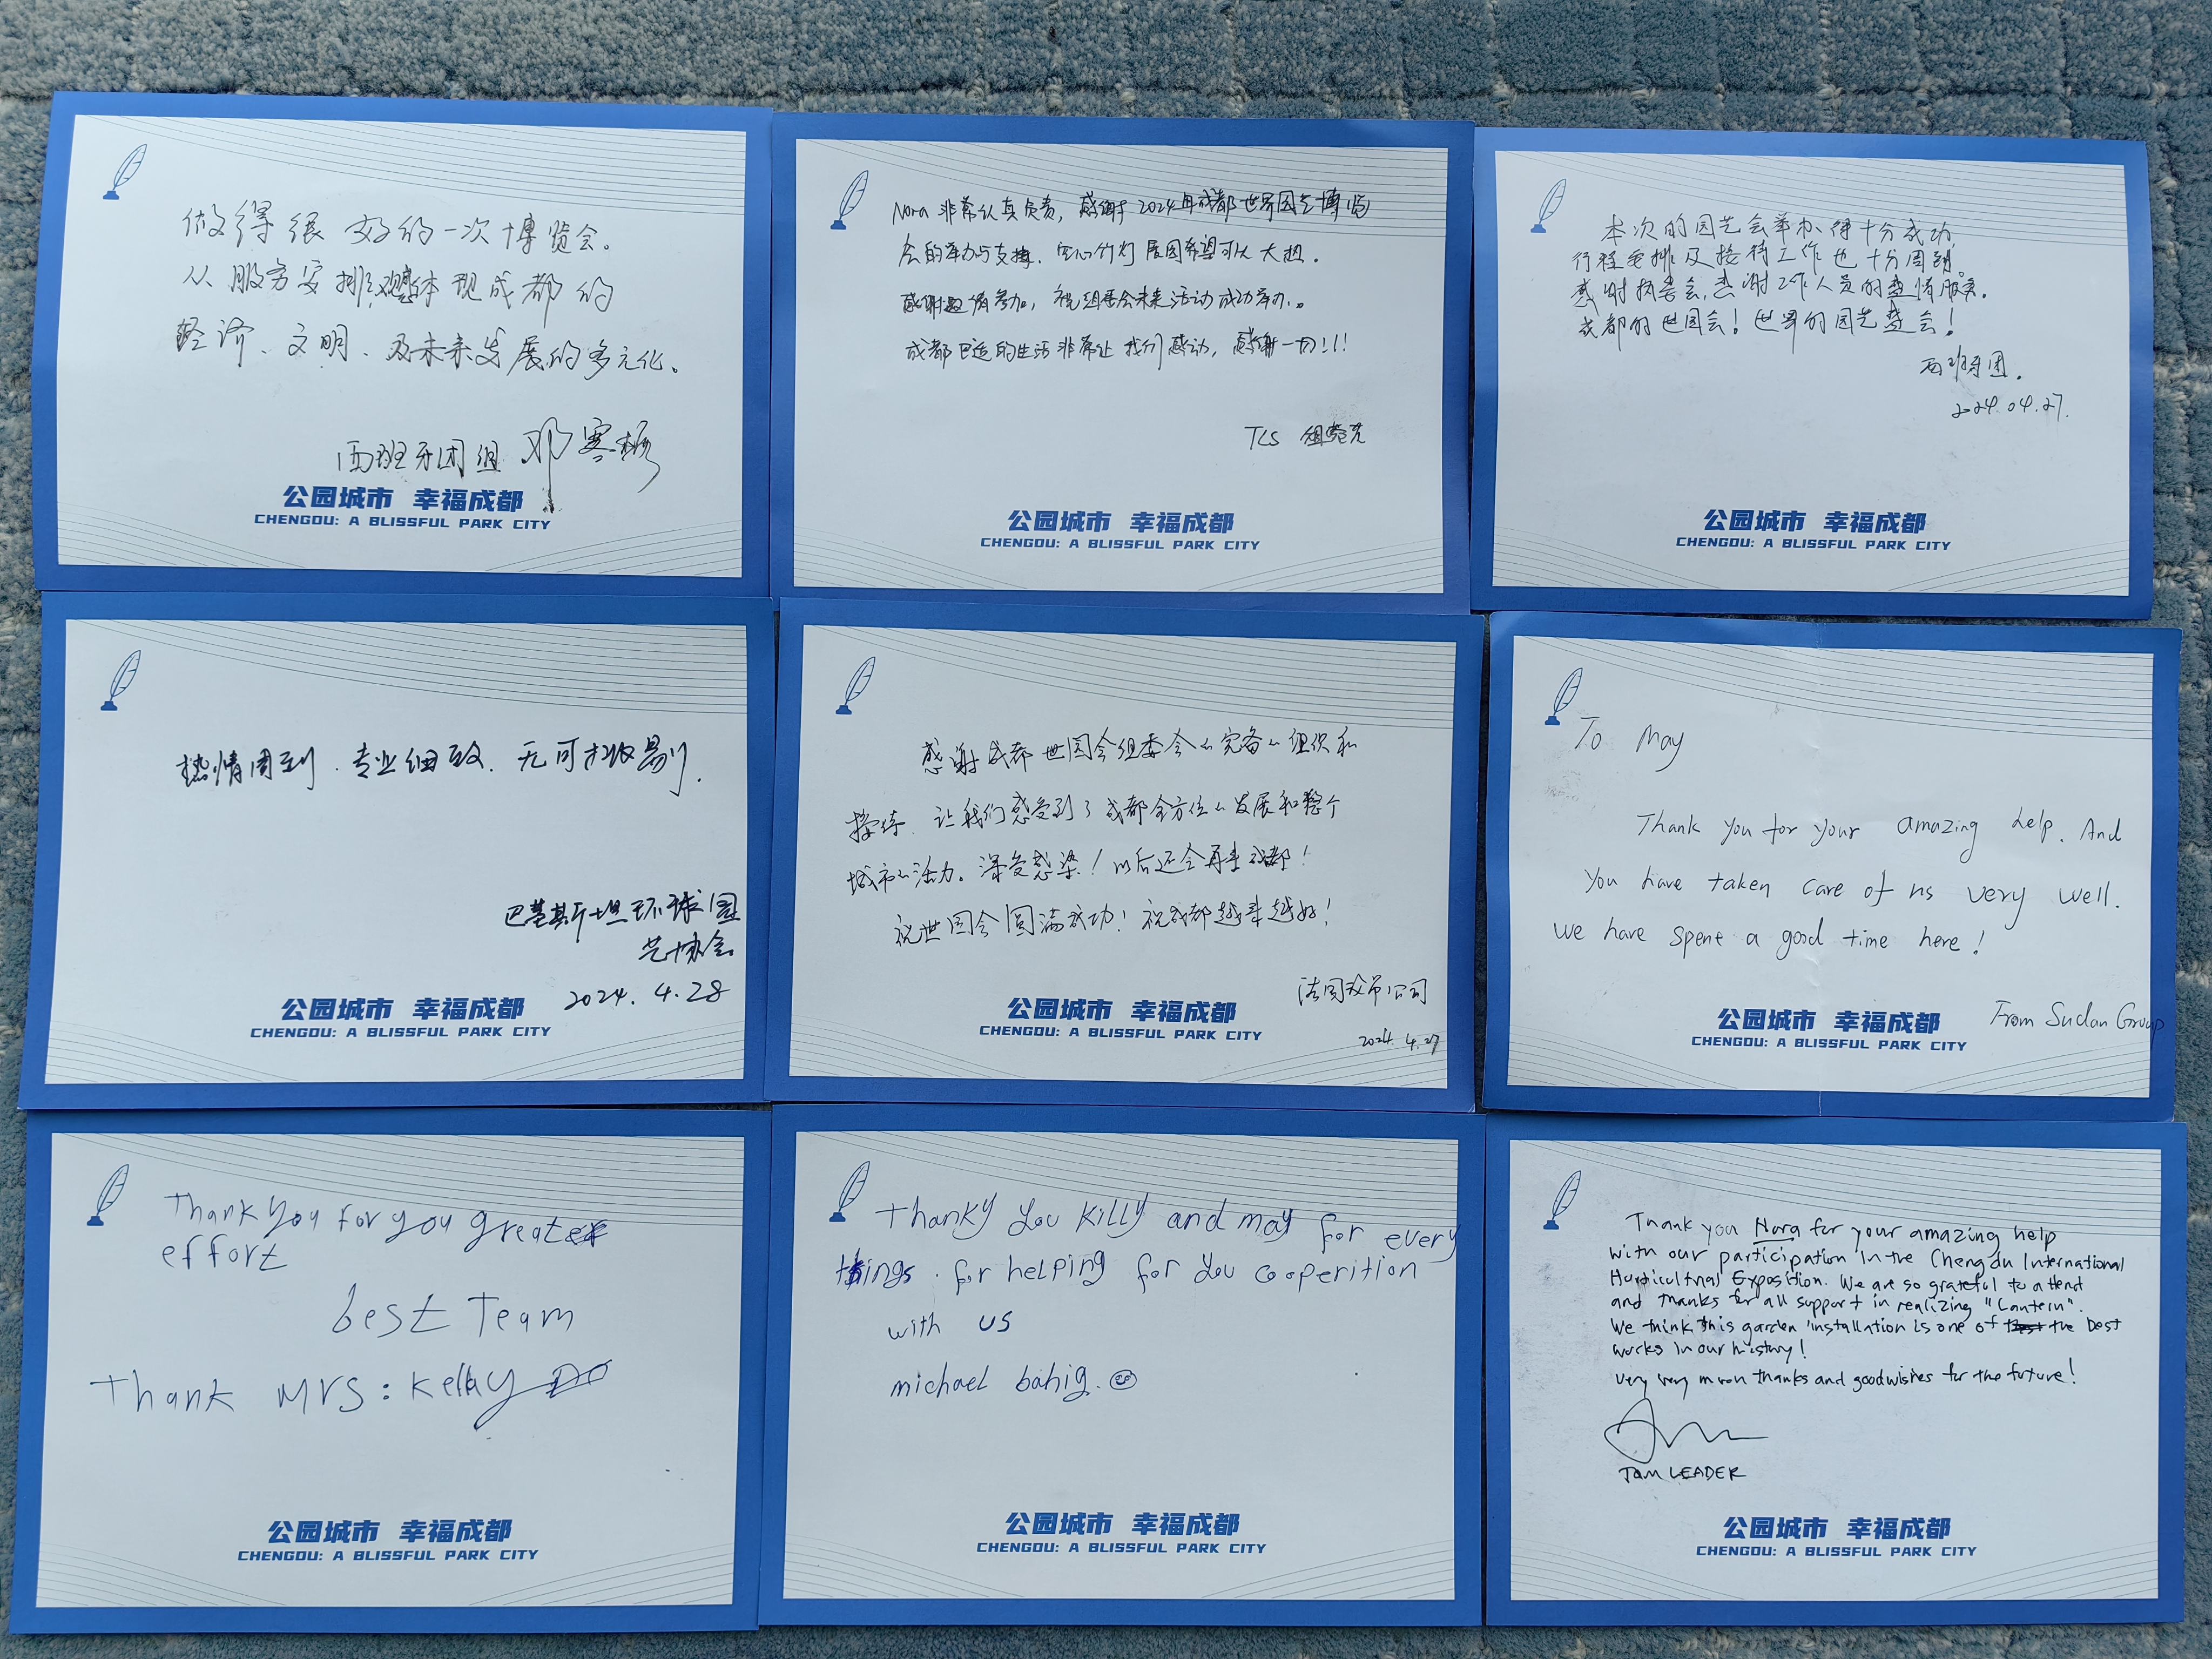 做得很好的一次博览会。
从服务安排,体现成都的
经济、文明、及未来发展的多元化。
西班牙团组 邓寒
公园城市 幸福成都
CHENGDU: A BLISSFUL PARK CITY
Nora 非常认真负责,感谢2024年成都世界园艺博览
会的举办与支持.空心竹灯展园希望可以大担.
感谢邀请参加,祝组委会未来活动成功举办。
成都巴适的生活非常让我们感动,感谢一切!!!
TLS
公园城市 幸福成都
CHENGDU: A BLISSFUL PARK CITY
本次的园艺会举办得十分成功,
行程安排及接待工作也十分周到。
感谢执委会,感谢工作人员的热情服务。
成都的世园会!世界的园艺盛会!
西班牙团.
2024.04.27.
公园城市 幸福成都
CHENGDU: A BLISSFUL PARK CITY
热情周到.专业细致.无可挑剔.
巴基斯坦环球园
艺协会
2024.4.28
公园城市 幸福成都
CHENGDU: A BLISSFUL PARK CITY
感谢成都世园会组委会的完备的组织和
接待.让我们感受到了成都全方位的发展和整个
城市的活力。深受感染!以后还会再来成都!
祝世园会圆满成功!祝成都越来越好!
法国公司
2024.4.27
公园城市 幸福成都
CHENGDU: A BLISSFUL PARK CITY
To May
Thank you for your amazing help. And
you have taken care of us very well.
We have spent a good time here!
From Sudan Group
公园城市 幸福成都
CHENGDU: A BLISSFUL PARK CITY
Thank you for you great
effort
best Team
Thank Mrs: Kelly
公园城市 幸福成都
CHENGDU: A BLISSFUL PARK CITY
Thanky you Killy and may for every
things. for helping for you cooperition
with us
michael bahig.
公园城市 幸福成都
CHENGDU: A BLISSFUL PARK CITY
Thank you Nora for your amazing help
with our participation in the Chengdu International
Horticultral Exposition. We are so grateful to attend
and thanks for all support in realizing "Lantern".
We think this garden installation is one of the best
works in our history!
Very very much thanks and good wishes for the future!
TOM LEADER
公园城市 幸福成都
CHENGDU: A BLISSFUL PARK CITY